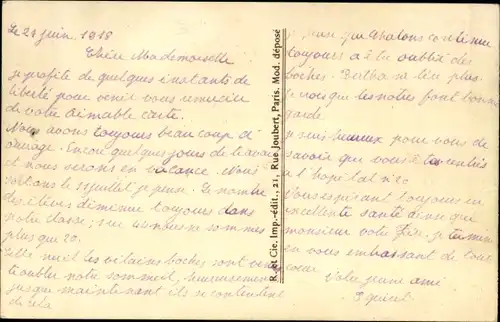 Le 24 juin 1918
Chère Mademoiselle
je profite de quelques instants de
liberté pour venir vous remercier
de votre aimable carte.
Nous avons toujours beaucoup d'
ouvrage. Encore quelques jours de travail
et nous serons en vacance. Nous
sortons le juillet je pense. Le nombre
des élèves diminue toujours dans
notre classe; nous ne sommes
plus que 20.
nuit les vilains boches sont venus
troubler notre sommeil, heureusement
jusque maintenant ils se contentent
de cela
R. et Cie, Imp.-édit., 21, Rue Joubert, Paris. Mod. déposé
que Chalons continue
toujours à être oublié des
boches. Bertha se tire plus.
je vois que les notres font bonne
garde.
je suis heureux pour vous de
savoir que vous
à l'hopital
Vous espérant toujours en
excellente santé ainsi que
monsieur votre je termine
en vous embrassant de tout
coeur.
Votre jeune ami